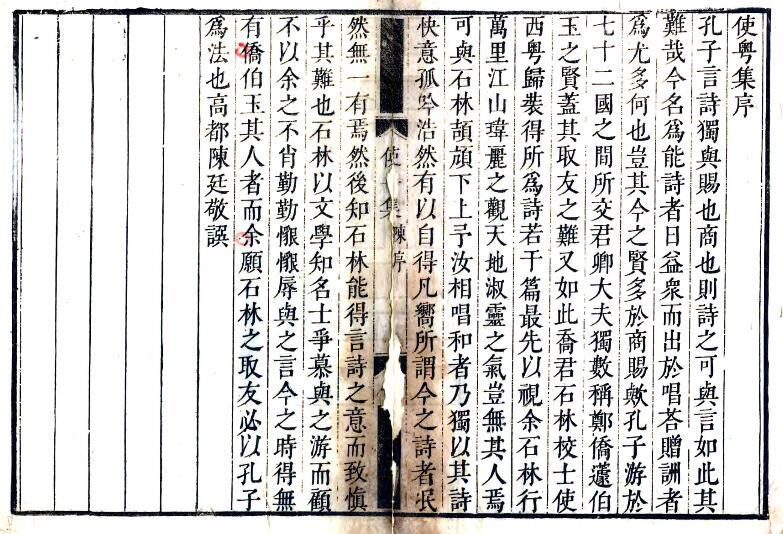 使粵集序
孔子言詩獨與賜也商也則詩之可與言如此其
難哉今名爲能詩者日益衆而出於唱荅贈詶者
爲尤多何也豈其今之賢多於商賜歟孔子游於
七十二國之間所交君卿大夫獨數稱鄭僑蘧伯
玉之賢蓋其取友之難又如此喬君石林校士使
西粵歸裝得所爲詩若干篇最先以視余石林行
萬里江山瑋麗之觀天地淑靈之氣豈無其人焉
可與石林頡頏下上予汝相唱和者乃獨以其詩
快意孤吟浩然有以自得凡嚮所謂今之詩者泯
使 集 陳序
然無一有焉然後知石林能得言詩之意而致愼
乎其難也石林以文學知名士爭慕與之游而顧
不以余之不肖勤勤懇懇辱與之言今之時得無
有僑伯玉其人者而余願石林之取友必以孔子
爲法也高都陳廷敬譔